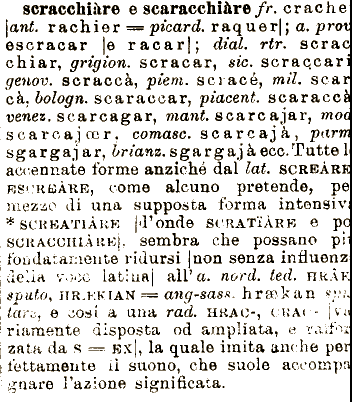 scracchiàre e scaracchiàre fr. crache
|ant. rachier = picard. raquer|; a. prov
escracar |e racar|; dial. rtr. scrac
chiar, grigion. scracar, sic. scraccari
genov. scraccà, piem. scracé, mil. scar
cà, bologn. scaraccar, piacent. scaraccà
venez. scarcagar, mant. scarcajar, mod
scarcajœr, comasc. scarcajà, parm
sgargajar, brianz. sgargajà ecc. Tutte l
accennate forme anziché dal lat. SCREÀRE
ESCREÀRE, come alcuno pretende, pe
mezzo di una supposta forma intensiv
* SCREATIÀRE |d'onde SCRATÏÀRE e po
SCRACCHIÀRE|, sembra che possano pi
fondatamente ridursi |non senza influenz
della voce latina| all'a. nord. ted. HRÂK
sputo, HR.EKIAN = ang-sass. hrækan spu
tare, e così a una rad. HRAC-, CRAC- |va
riamente disposta od ampliata, e raffor
zata da S = EX|, la quale imita anche per
fettamente il suono, che suole accompa
gnare l'azione significata.